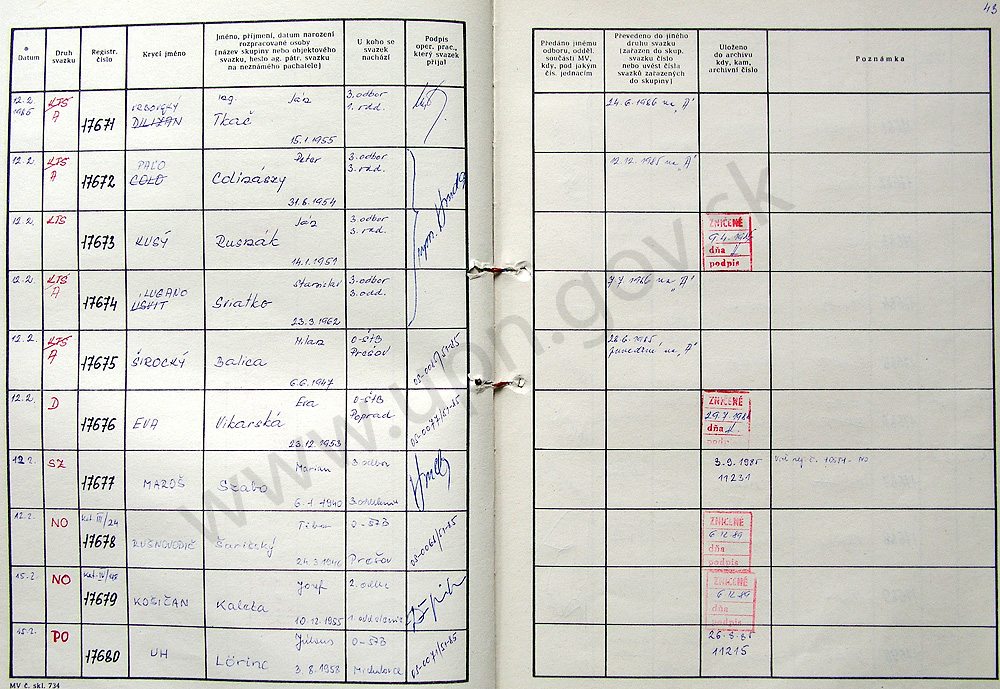 43
Datum
Druh svazku
Registr. číslo
Krycí jméno
Jméno, příjmení, datum narození rozpracované osoby (název skupiny nebo objektového svazku, heslo ag. pátr. svazku na neznámého pachatele)
U koho se svazek nachází
Podpis oper. prac., který svazek přijal
Předáno jinému odboru, odděl. součásti MV, kdy, pod jakým čís. jednacím
Převedeno do jiného druhu svazku (zařazen do skup. svazku číslo nebo uvést čísla svazků zařazených do skupiny)
Uloženo do archivu kdy, kam, archivní číslo
Poznámka
12.2. 1985
KTS
A
17671
DILIZAN
Ing. Ján
Tkáč
15.1.1955
3. odbor
1. odd.
24.6.1986 na „A"
12.2.
KTS
A
17672
PAĽO
COLO
Peter
31.6.1954
3. odbor
3. odd.
12.12.1985 na „A"
12.2.
KTS
17673
KUSÝ
Ján
Rusnák
14.1.1951
3. odbor
3. odd.
ZNIČENÉ
dňa
podpis
12.2.
KTS
A
17674
LUGANO
Stanislav
Sniatko
23.3.1962
3. odbor
3. odd.
12.2.
KTS
A
17675
ŠIROCKÝ
Milan
Balica
6.6.1947
O-ŠTB
Prešov
12.2.
D
17676
EVA
Eva
Vikarská
23.12.1953
O-ŠTB
Poprad
ZNIČENÉ
dňa
podpis
12.2.
SZ
17677
MAROŠ
Marian
Szabo
6.1.1940
3. odbor
3. oddelenie
3.9.1985
11231
12.2.
NO
17678
Tibor
Šarišský
O-ŠTB
Prešov
ZNIČENÉ
6.12.89
dňa
podpis
15.2.
NO
17679
KOŠIČAN
Jozef
Kaleta
10.12.1955
2. odbor
1. oddelenie
ZNIČENÉ
6.12.89
dňa
podpis
15.2.
PO
17680
UH
Július
Lörinc
3.8.1958
O-ŠTB
Michalovce
11215
MV č. skl. 734
www.upn.gov.sk